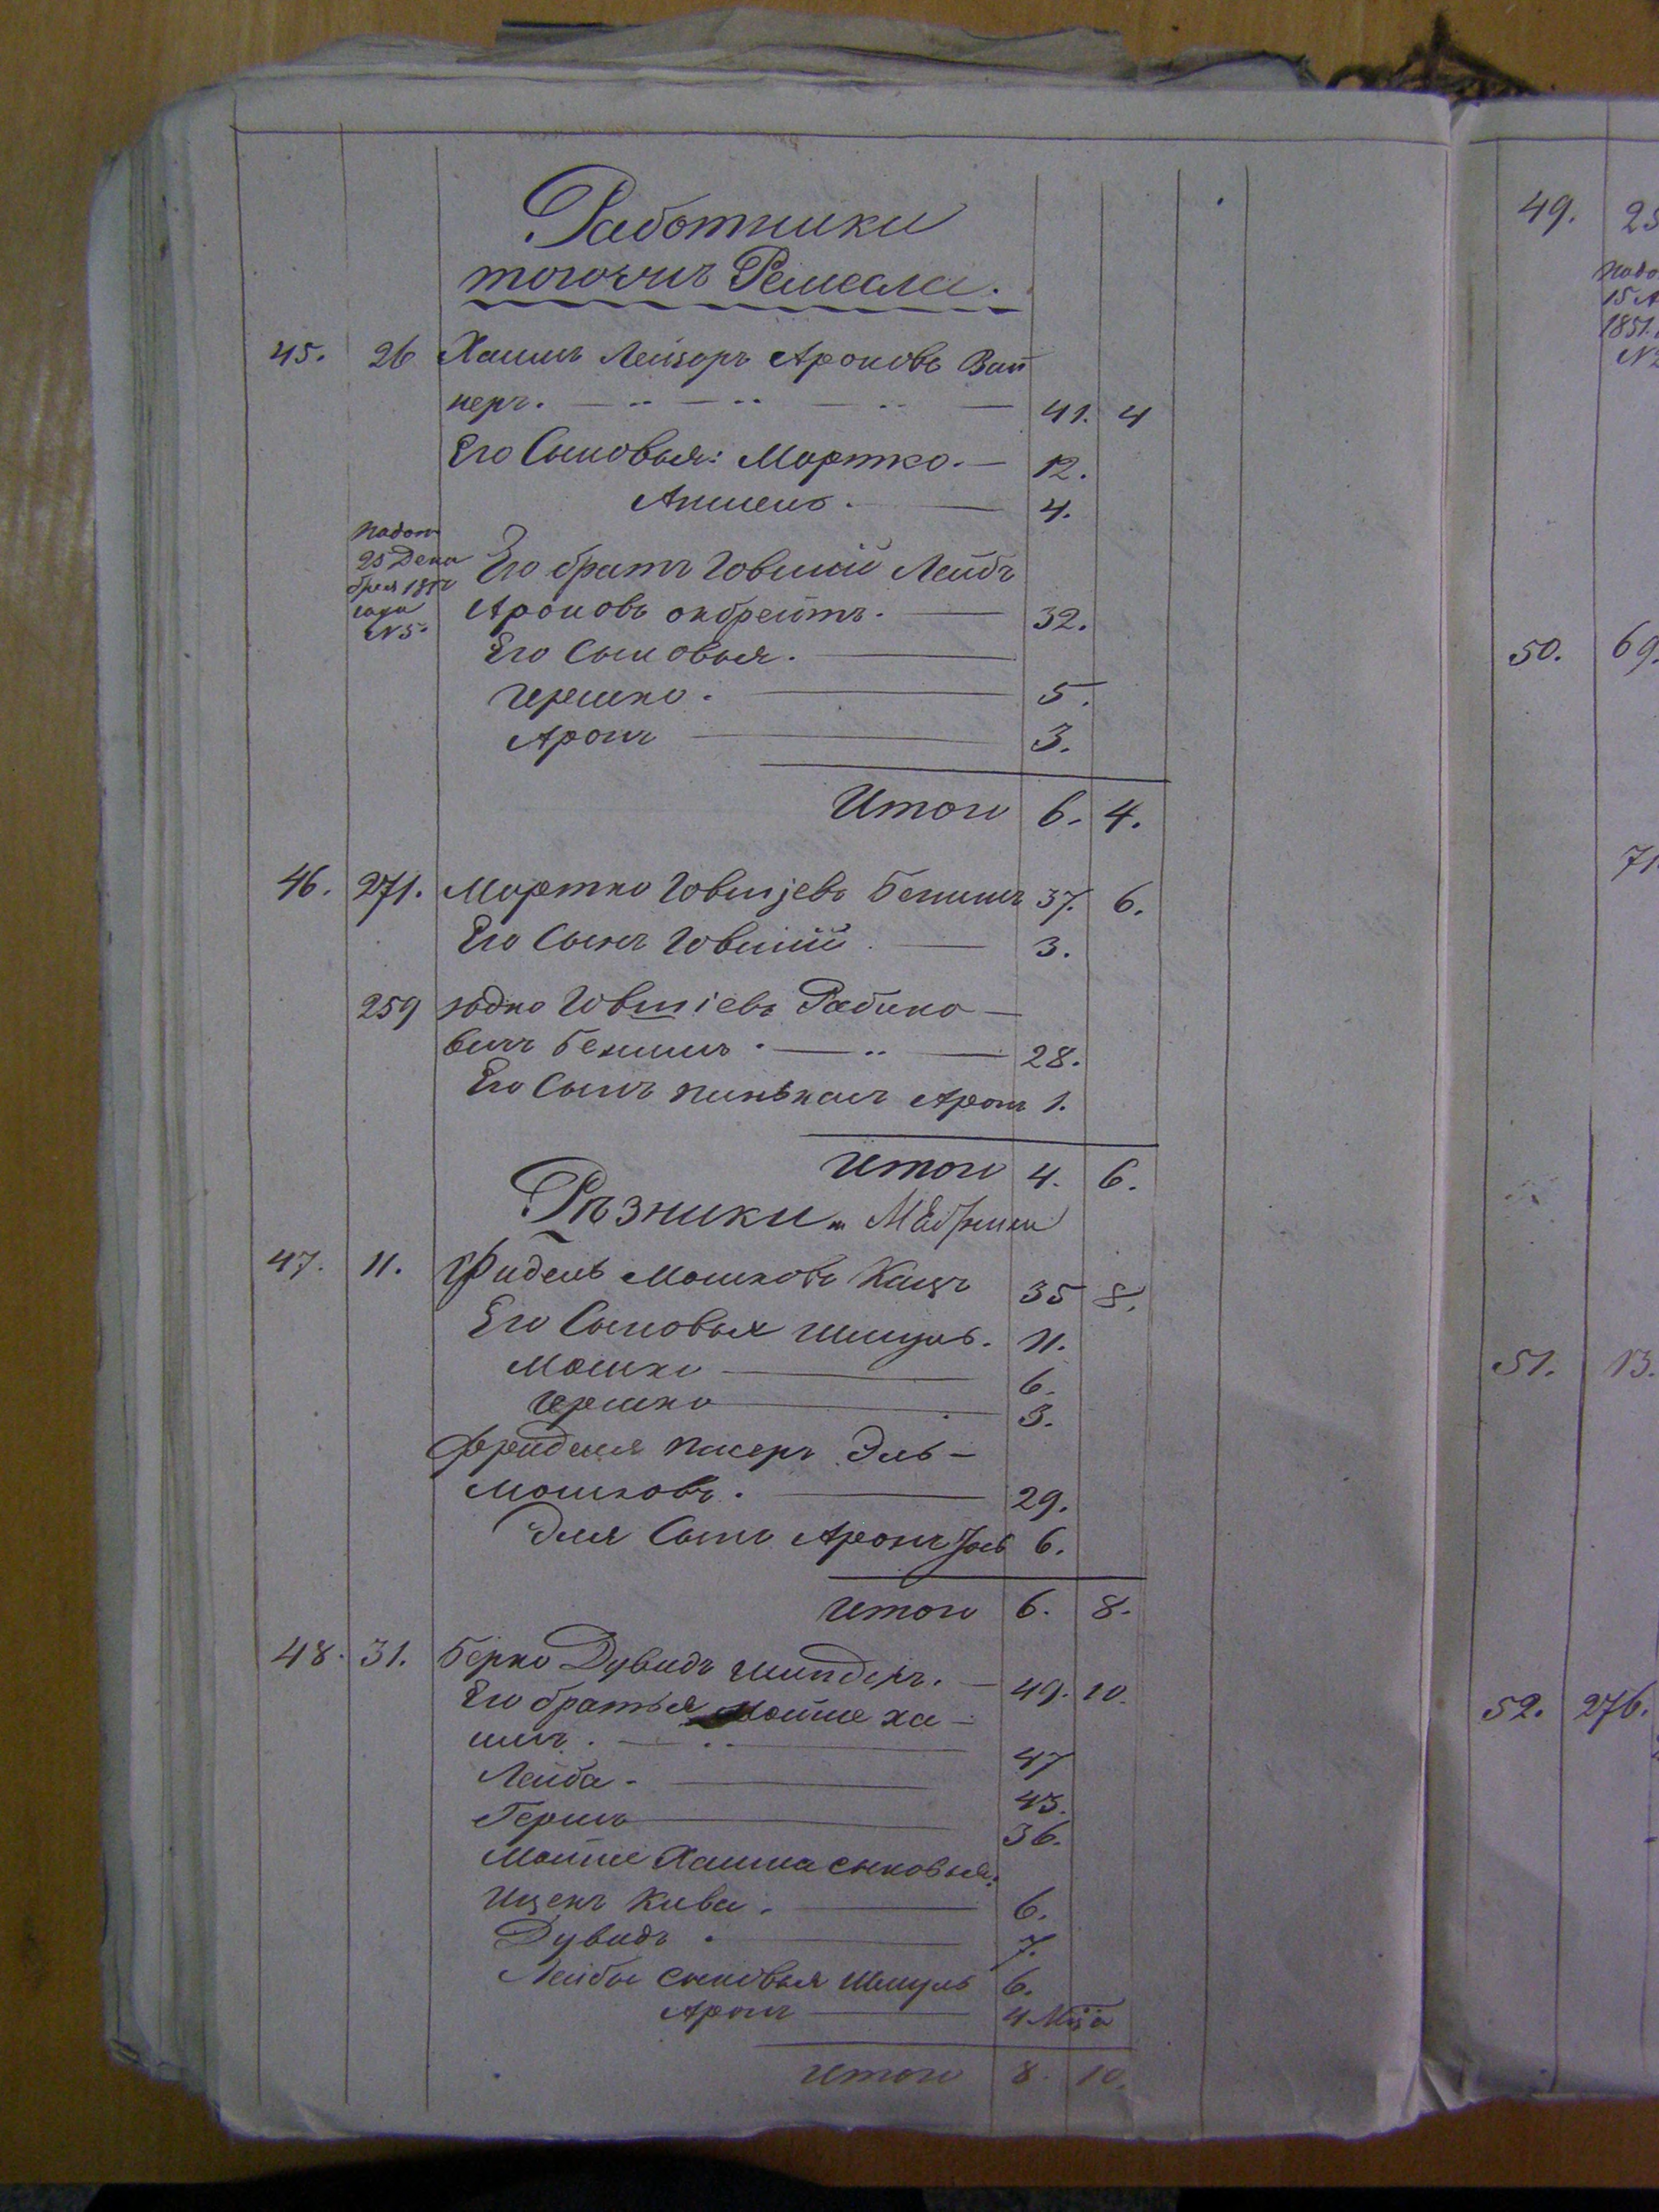 Работники
тогожъ Ремесла.
45. 26 Хаимъ Лейзоръ Ароновъ Вай
неръ. 41. 4
Его Сыновья: Мортко. 12.
Аншель. 4.
надог
25 Дека
бря
года
N5.
Его братъ Іовшій Лейбъ
Ароновъ 32.
Его Сыновья.
Гершко. 5.
Аронъ 3.
Итого 6. 4.
46. 271. Мортко Іовшіевъ Бенишъ 37. 6.
Его Сынъ Іовшій 3.
259 Юдко Іовшіевъ Рабино
вичъ Бенишъ. 28.
Его Сынъ Пинькасъ Аронъ 1.
Итого 4. 6.
Рѣзники.
47. 11. Фидель Мошковъ Кацъ 35 8.
Его Сыновья Шмуль. 11.
Мошко 6.
Гершко 3.
Фриделя Эль
Мошковъ. 29.
Эля Сынъ Аронъ 6.
Итого 6. 8.
48. 31. Берко Дувидъ Шиндеръ. 49. 10.
Его братья Мошке Ха
имъ. 47
Лейба. 43.
Гершъ 36.
Мошке Хаима сыновья:
Ицекъ Кива. 6.
Дувидъ. 7.
Лейбы сыновья Шмуль 6.
Аронъ 4 М-ца
Итого 8. 10.
49. 25
надо
15 А
1851.
N2
50. 69.
71
51. 13.
52. 276.